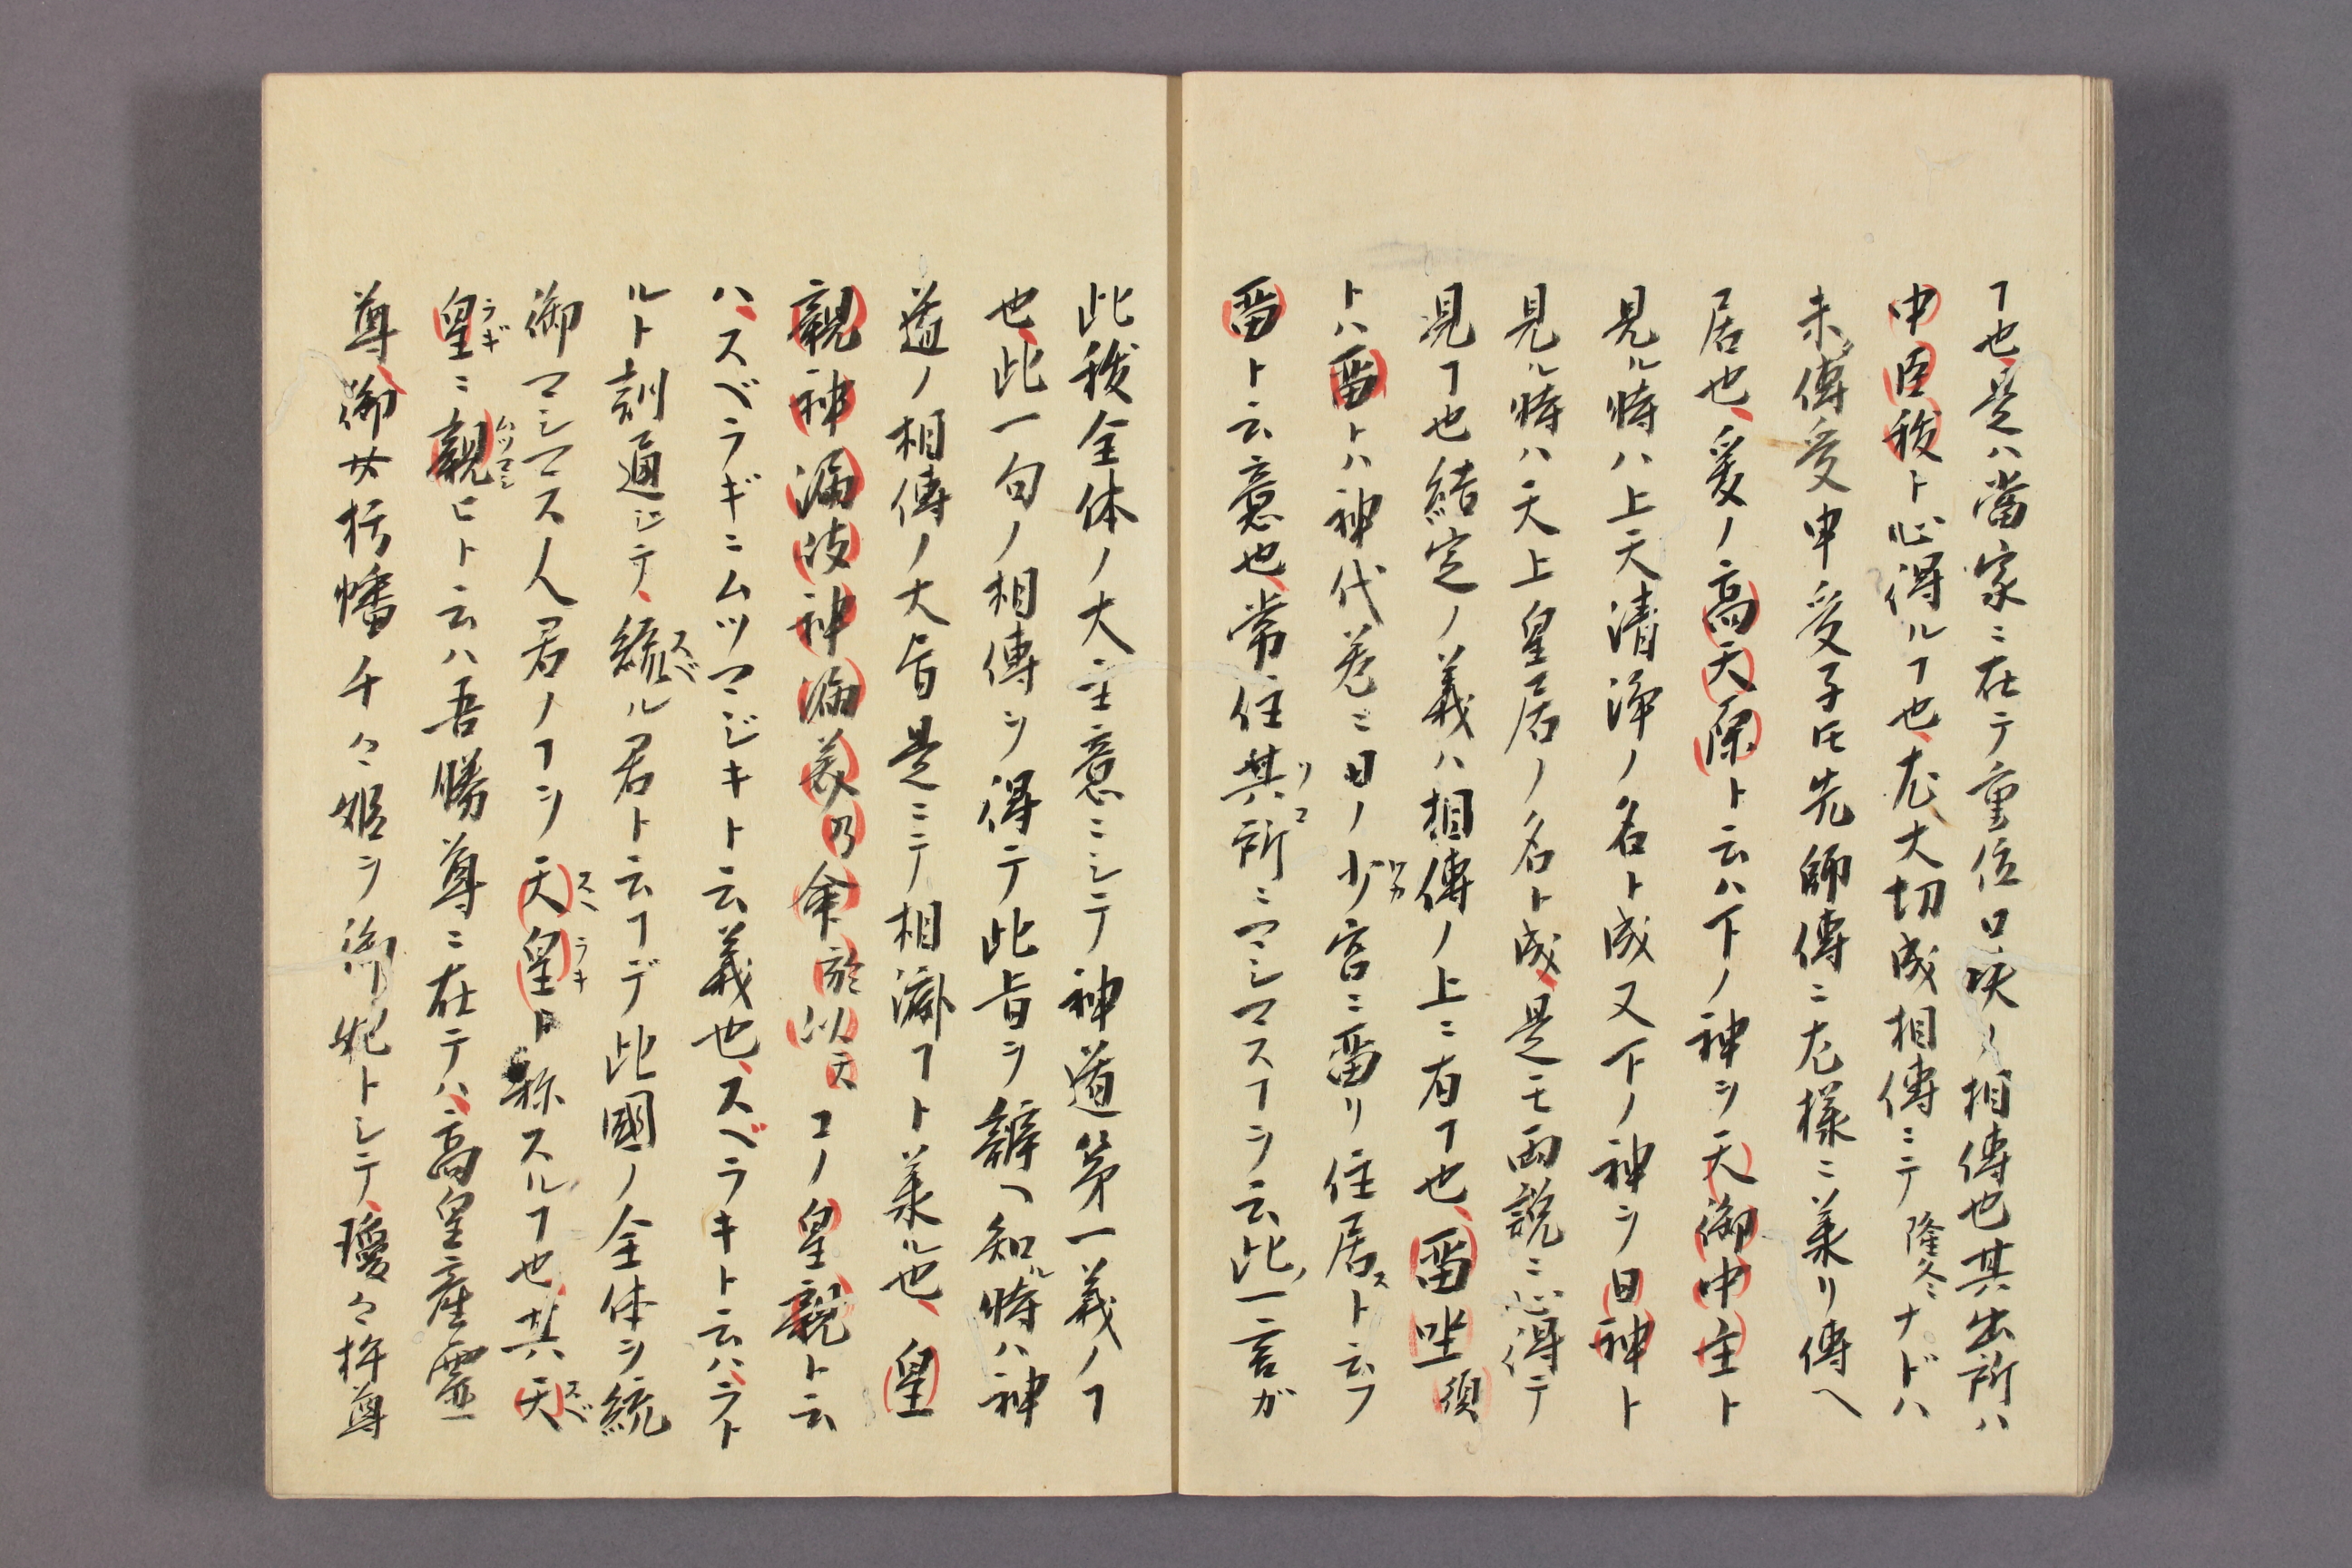 ヿ也是ハ當家ニ在テ重位口訣ノ相傳也其出所ハ
中臣祓ト心得ルヿ也尤大切成相傳ニテ隆冬ナドハ
未傳受申受子氏先師傳ニ尤様ニ美リ傳ヘ
居也爰ノ高天原ト云ハ下ノ神ヲ天御中主ト
見ル時ハ上天清浄ノ名ト成又下ノ神ヲ日神ト
見ル時ハ天上皇居ノ名ト成是モ両説ニ心得テ
見ヿ也結定ノ義ハ相傳ノ上ニ有ヿ也畄坐須
トハ畄トハ神代巻ニ日ノ少宮ニ畄リ住居スト云フ
畄ト云意也常住其所ニマシマスヿヲ云此一言ガ
此祓全体ノ大主意ニシテ神道第一義ノヿ
也此一句ノ相傳ヲ得テ此旨ヲ辨ヘ知ル時ハ神
道ノ相傳ノ大旨是ニテ相濟ヿト美ル也皇
親神漏岐神漏美乃命於以天コノ皇親ト云
ハスベラギニムツマジキト云義也スベラキト云ハラト
ルト訓通ジテ統ル君ト云ヿデ此國ノ全体ヲ統
御マシマス人君ノヿヲ天皇ト称スルヿ也其天
皇ニ親ヒト云ハ吾勝尊ニ在テハ高皇産霊
尊御女栲幡千々姫ヲ御妃トシテ瓊々杵尊